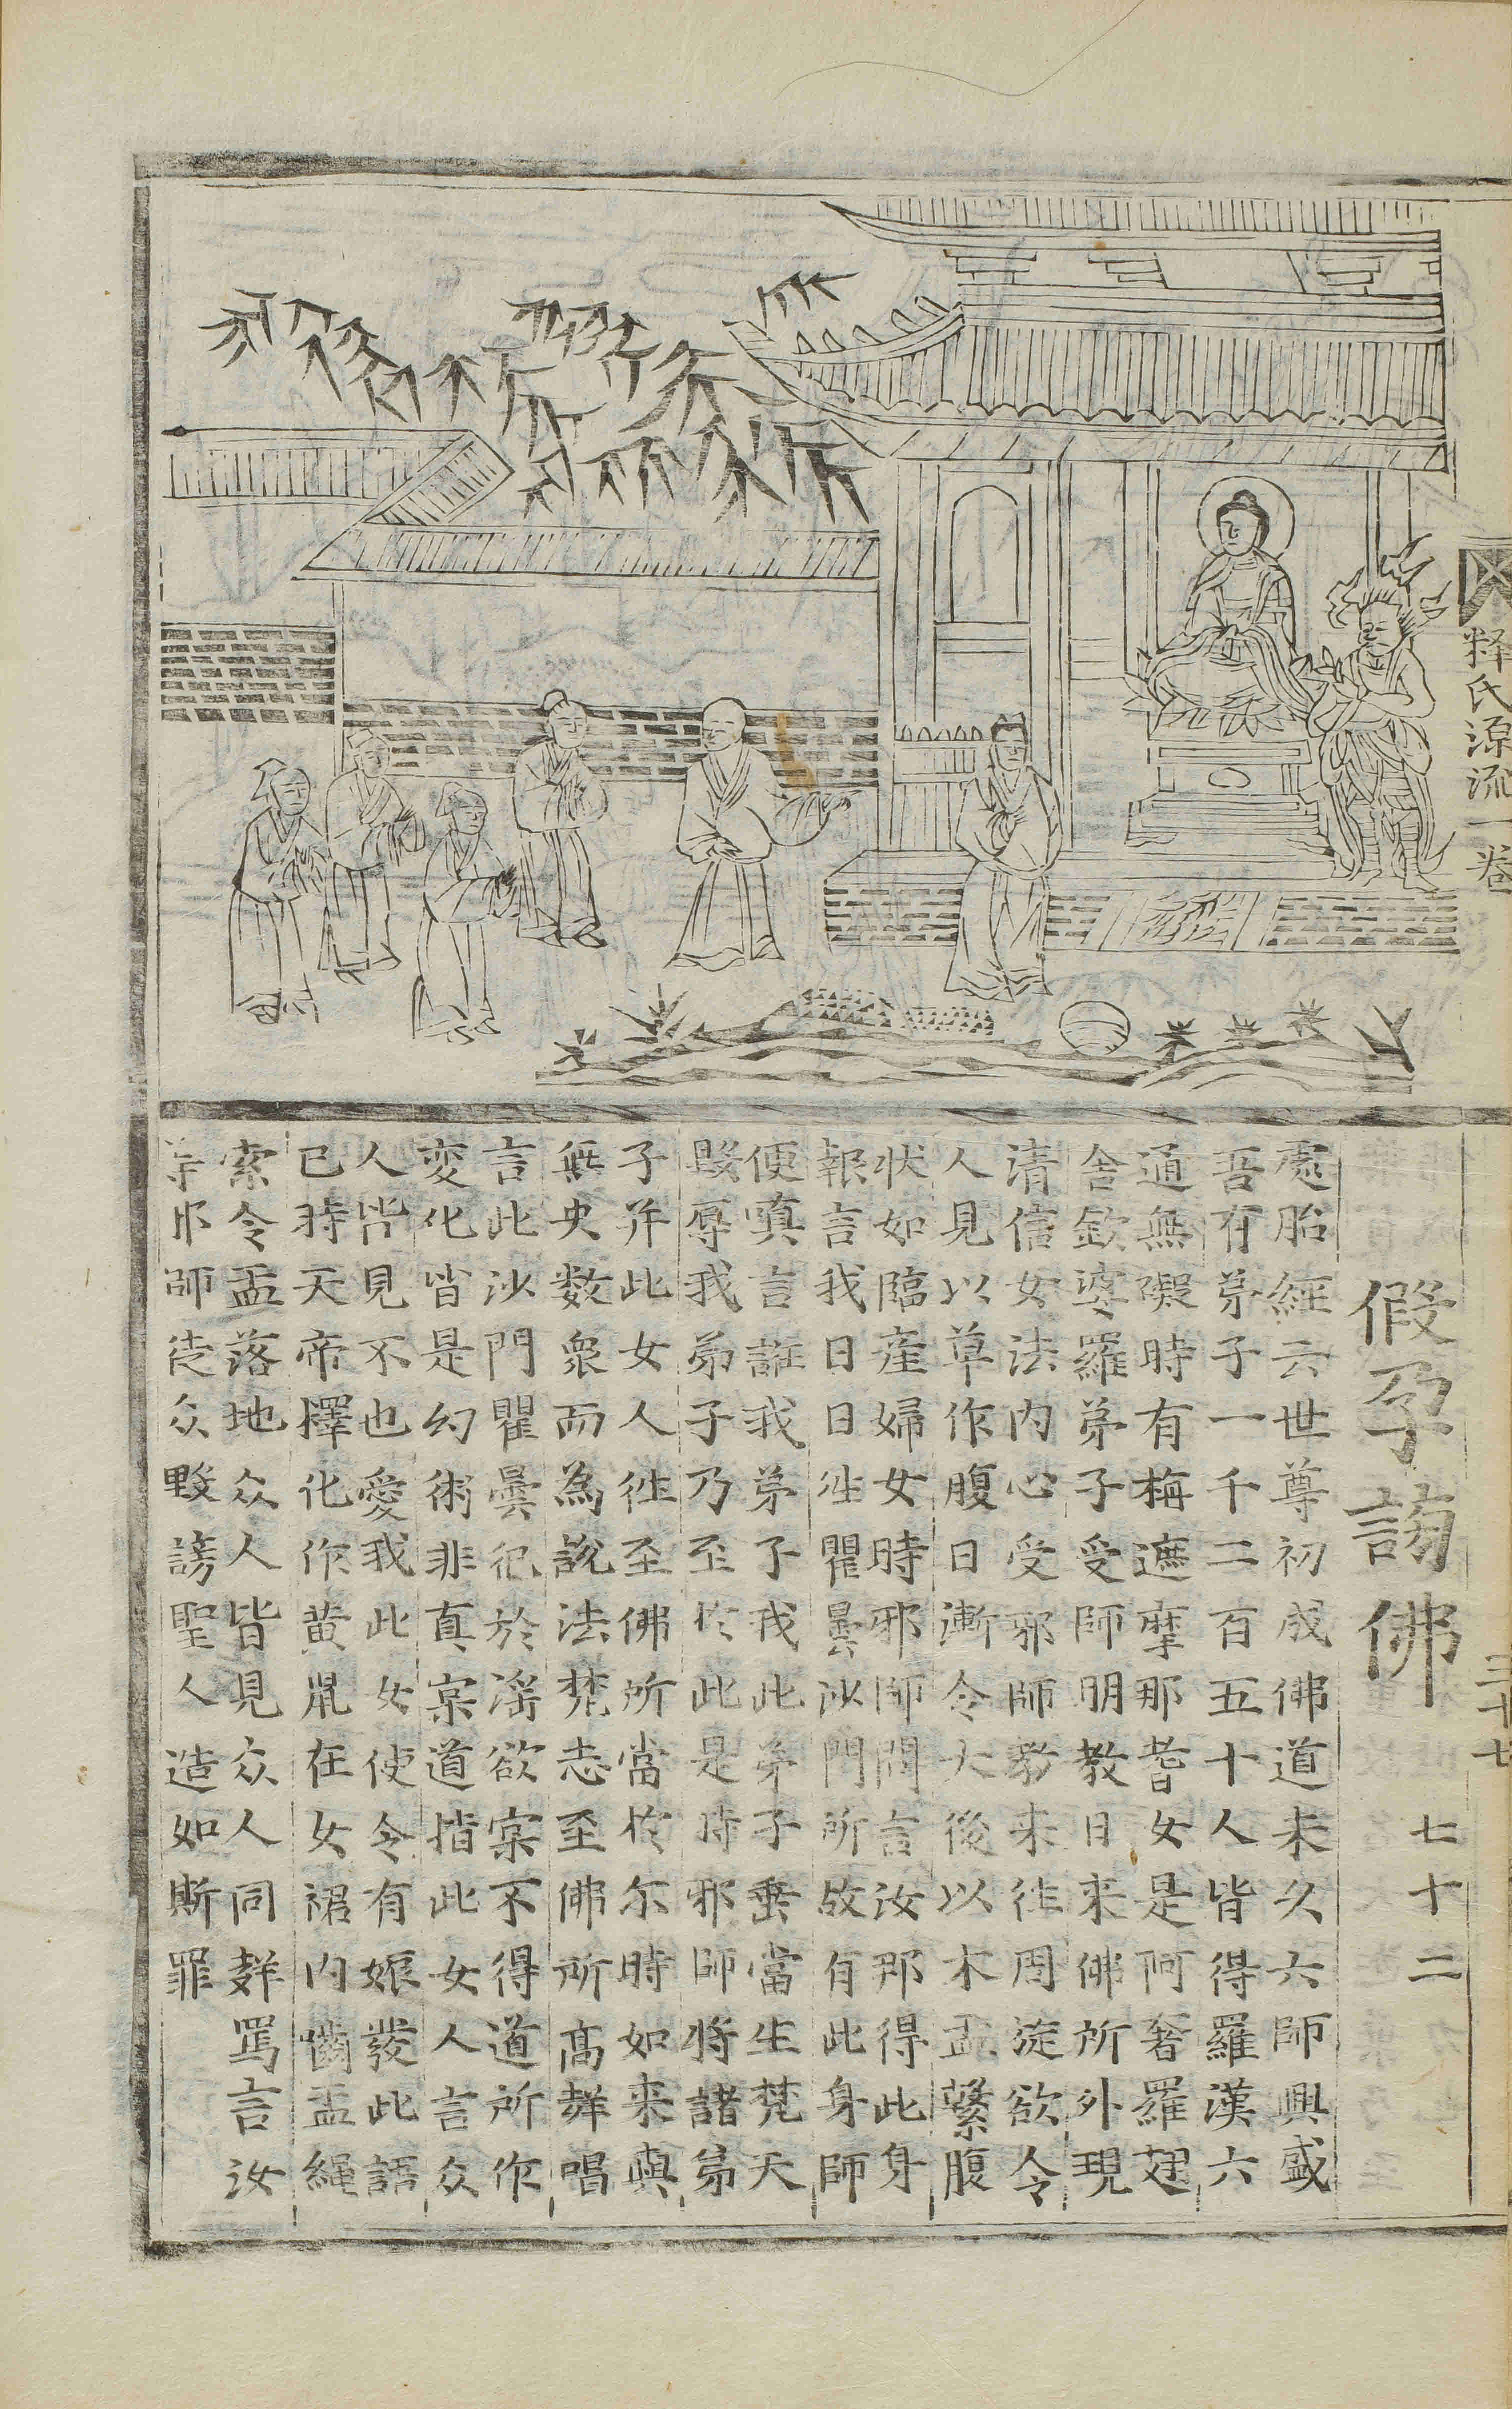 釋氏源流一卷
三十七
七十二
假孕謗佛
處胎經云世尊初成佛道未久六師興盛
吾有弟子一千二百五十人皆得羅漢六
通無礙時有梅遮摩那耆女是阿耆羅翅
舍欽婆羅弟子受師明教日来佛所外現
清信女法内心受邪師教来往周旋欲令
人見以草作腹日漸令大後以木盂繫腹
状如臨産婦女時邪師問言汝那得此身
報言我日日往瞿曇沙門所故有此身師
便嗔言誰我弟子我此弟子垂當生梵天
毀辱我弟子乃至扵此是時邪師將諸弟
子并此女人徃至佛所當扵尔時如来與
無央数衆而為說法梵志至佛所高聲唱
言此沙門瞿曇犯於滛欲寀不得道所作
変化皆是幻術非真寀道指此女人言众
人皆見不也愛我此女使令有娠發此語
已時天帝擇化作黄鼠在女裙内嚙盂繩
索令盂落地众人皆見众人同聲罵言汝
等邪師徒众毀謗聖人造如斯罪